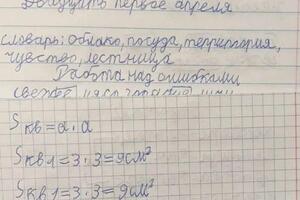 Двадцать первое апреля
словарь: облако, посуда, территория,
чувство, лестница
Работа над ошибками
Sкв=a·a
Sкв1=3·3=9см²
Sкв1=3·3=9см²